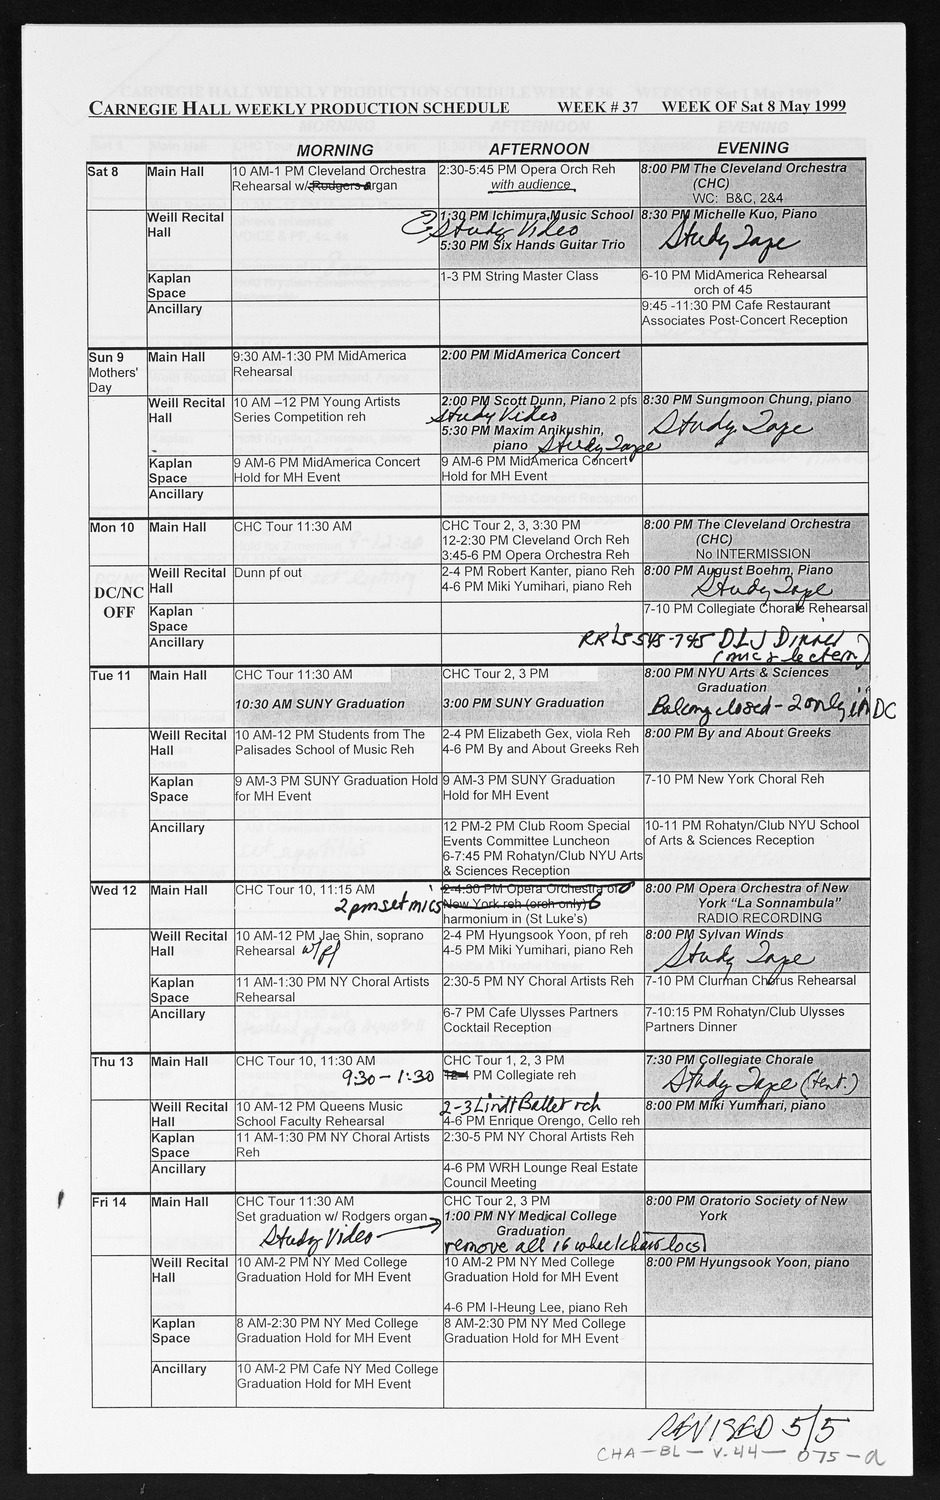 CARNEGIE HALL WEEKLY PRODUCTION SCHEDULE WEEK # 37 WEEK OF Sat 8 May 1999
MORNING AFTERNOON EVENING
Sat 8
Main Hall
10 AM-1 PM Cleveland Orchestra
Rehearsal w/ Rodgers organ
2:30-5:45 PM Opera Orch Reh
with audience
8:00 PM The Cleveland Orchestra
(CHC)
WC: B&C, 2&4
Weill Recital
Hall
1:30 PM Ichimura Music School
Study Video
5:30 PM Six Hands Guitar Trio
8:30 PM Michelle Kuo, Piano
Study Tape
Kaplan
Space
1-3 PM String Master Class
6-10 PM MidAmerica Rehearsal
orch of 45
Ancillary
9:45 -11:30 PM Cafe Restaurant
Associates Post-Concert Reception
Sun 9
Mothers'
Day
Main Hall
9:30 AM-1:30 PM MidAmerica
Rehearsal
2:00 PM MidAmerica Concert
Weill Recital
Hall
10 AM –12 PM Young Artists
Series Competition reh
2:00 PM Scott Dunn, Piano 2 pfs
Study Video
5:30 PM Maxim Anikushin,
piano Study Tape
8:30 PM Sungmoon Chung, piano
Study Tape
Kaplan
Space
9 AM-6 PM MidAmerica Concert
Hold for MH Event
9 AM-6 PM MidAmerica Concert
Hold for MH Event
Ancillary
Mon 10
DC/NC
OFF
Main Hall
CHC Tour 11:30 AM
CHC Tour 2, 3, 3:30 PM
12-2:30 PM Cleveland Orch Reh
3:45-6 PM Opera Orchestra Reh
8:00 PM The Cleveland Orchestra
(CHC)
No INTERMISSION
Weill Recital
Hall
Dunn pf out
2-4 PM Robert Kanter, piano Reh
4-6 PM Miki Yumihari, piano Reh
8:00 PM August Boehm, Piano
Study Tape
Kaplan
Space
7-10 PM Collegiate Chorale Rehearsal
Ancillary
RR's 545-745 DLJ Dinner
(mic & lectern)
Tue 11
Main Hall
CHC Tour 11:30 AM
10:30 AM SUNY Graduation
CHC Tour 2, 3 PM
3:00 PM SUNY Graduation
8:00 PM NYU Arts & Sciences
Graduation
Balcony closed - 2 only in DC
Weill Recital
Hall
10 AM-12 PM Students from The
Palisades School of Music Reh
2-4 PM Elizabeth Gex, viola Reh
4-6 PM By and About Greeks Reh
8:00 PM By and About Greeks
Kaplan
Space
9 AM-3 PM SUNY Graduation Hold
for MH Event
9 AM-3 PM SUNY Graduation
Hold for MH Event
7-10 PM New York Choral Reh
Ancillary
12 PM-2 PM Club Room Special
Events Committee Luncheon
6-7:45 PM Rohatyn/Club NYU Arts
& Sciences Reception
10-11 PM Rohatyn/Club NYU School
of Arts & Sciences Reception
Wed 12
Main Hall
CHC Tour 10, 11:15 AM
2pm set mics
2-4:30 PM Opera Orchestra of
New York reh (orch only)
harmonium in (St Luke's)
8:00 PM Opera Orchestra of New
York “La Sonnambula”
RADIO RECORDING
Weill Recital
Hall
10 AM-12 PM Jae Shin, soprano
Rehearsal w/pf
2-4 PM Hyungsook Yoon, pf reh
4-5 PM Miki Yumihari, piano Reh
8:00 PM Sylvan Winds
Study Tape
Kaplan
Space
11 AM-1:30 PM NY Choral Artists
Rehearsal
2:30-5 PM NY Choral Artists Reh
7-10 PM Clurman Chorus Rehearsal
Ancillary
6-7 PM Cafe Ulysses Partners
Cocktail Reception
7-10:15 PM Rohatyn/Club Ulysses
Partners Dinner
Thu 13
Main Hall
CHC Tour 10, 11:30 AM
9:30 - 1:30
CHC Tour 1, 2, 3 PM
12-4 PM Collegiate reh
7:30 PM Collegiate Chorale
Study Tape (tent.)
Weill Recital
Hall
10 AM-12 PM Queens Music
School Faculty Rehearsal
2-3 Lindt Ballet reh
4-6 PM Enrique Orengo, Cello reh
8:00 PM Miki Yumihari, piano
Kaplan
Space
11 AM-1:30 PM NY Choral Artists
Reh
2:30-5 PM NY Choral Artists Reh
Ancillary
4-6 PM WRH Lounge Real Estate
Council Meeting
Fri 14
Main Hall
CHC Tour 11:30 AM
Set graduation w/ Rodgers organ
Study Video
CHC Tour 2, 3 PM
1:00 PM NY Medical College
Graduation
remove all 16 wheelchair locs
8:00 PM Oratorio Society of New
York
Weill Recital
Hall
10 AM-2 PM NY Med College
Graduation Hold for MH Event
10 AM-2 PM NY Med College
Graduation Hold for MH Event
4-6 PM I-Heung Lee, piano Reh
8:00 PM Hyungsook Yoon, piano
Kaplan
Space
8 AM-2:30 PM NY Med College
Graduation Hold for MH Event
8 AM-2:30 PM NY Med College
Graduation Hold for MH Event
Ancillary
10 AM-2 PM Cafe NY Med College
Graduation Hold for MH Event
REVISED 5/5
CHA-BL-V.44-075-a